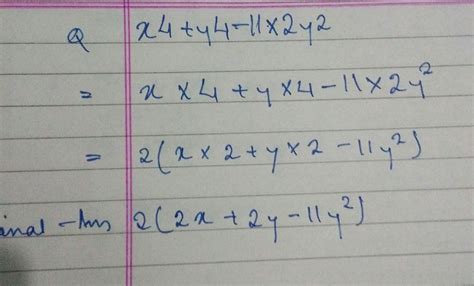 Q x4+y4-11x2y2
= x×4+y×4-11×2y²
= 2(x×2+y×2-11y²)
inal - Ans 2(2x+2y-11y²)